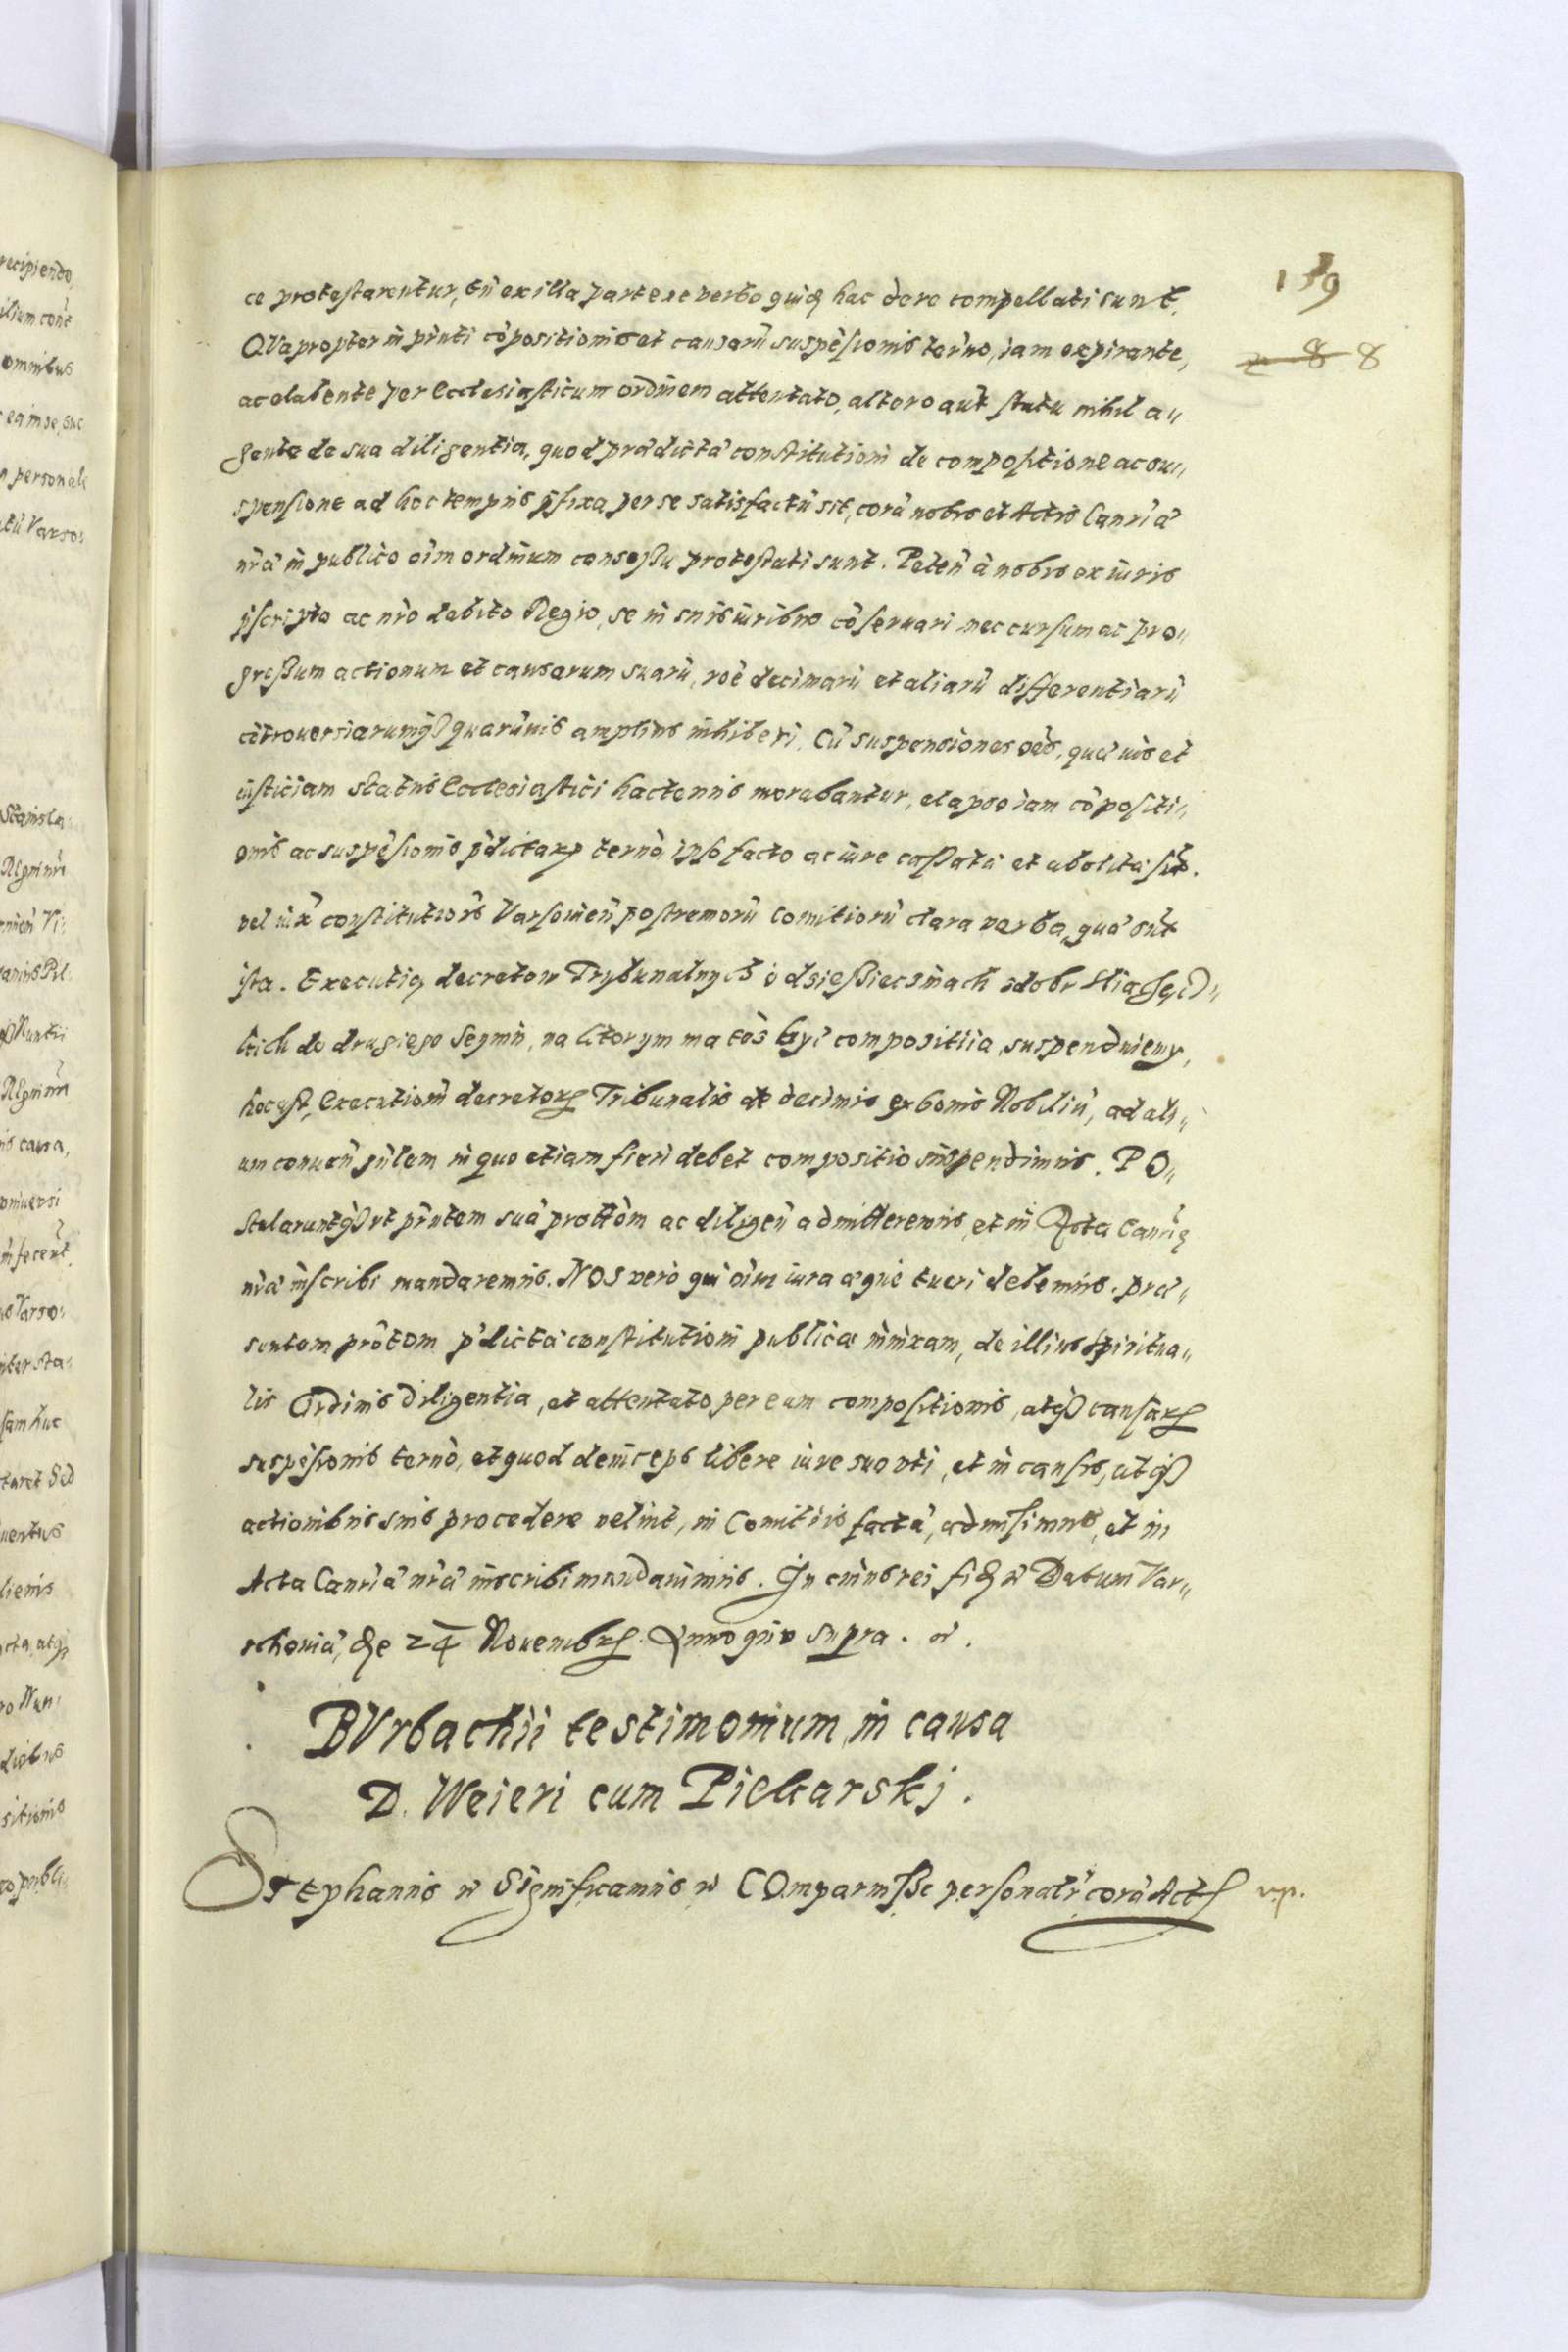 159
z 8 8
ce protestarentur, tn̄ ex illa parte ne verbo quid hac de re compellati sunt.
QVapropter in pr̄nti cōpositionis et causarū suspēsionis ter̄no, iam expirante,
ac elabente per Ecclesiasticum ordinem attentato, altero aūt statu nihil a„
gente de sua diligentia, quod prædictæ constitutioni de compositione ac su„
spensione ad hoc tempus p̄fixa, per se satisfactū sit, corā nobis et Actis Canr̄iæ
nr̄æ in publico oīm ordinum consessu protestati sunt. Peteñ à nobis ex iuris
p̄scripto ac nr̄o debito Regio, se in suis iuribus cōseruari nec cursum ac pro„
gressum actionum et causarum suarū, roē decimarū et aliarū differentiarū
cōtrouersiarumq quarūuis amplius inhiberi. Cū suspensiones oēs, quæ ius et
iusticiam status Ecclesiastici hactenus morabantur, elapso iam cōpositi„
onis ac suspēsionis p̄dictarum ter̄no, ipso facto ac iure cassatæ et abolitæ sūt.
vel iux̄ constitutionis Varsouieñ postremorū Comitiorū clara verba, quæ sūt
ista. Executią decretow Trybunalnych o dsiessiecsinach z dobr Sliachec„
kich do drugiego Seymu, na ktorym ma tós byc compositiia, suspenduiemy,
hoc est, Executionē decretorum Tribunalis de decimis ex bonis Nobiliū, ad ali„
um conuen̄ gn̄lem in quo etiam fieri debet compositio suspendimus. PO„
stularuntq vt pr̄ntem suā prottōm ac diligen̄ admitteremus, et in Acta Canr̄ię
nr̄æ inscribi mandaremus. NOS vero qui oīm iura æque tueri debemus. præ„
sentem prōtōm p̄dictæ constitutioni publicæ innixam, de illius spiritua„
lis Ordinis diligentia, et attentato per eum compositionis, atq causarum
suspēsionis ter̄no, et quod deinceps libere iure suo vti, et in causis, atq
actionibus suis procedere velint, in Comitiis factā, admisimus, et in
Acta Canr̄iæ nr̄æ inscribi mandauimus. In cuius rei fid. &. Datum Var„
schouiæ, die 24 Nouembris. Anno quo supra. &.
BVrbachii testimonium, in causa
D. Weieri cum Piekarskj.
STephanus & Significamus & COmparuisse personalr̄ corā Actis v.p.